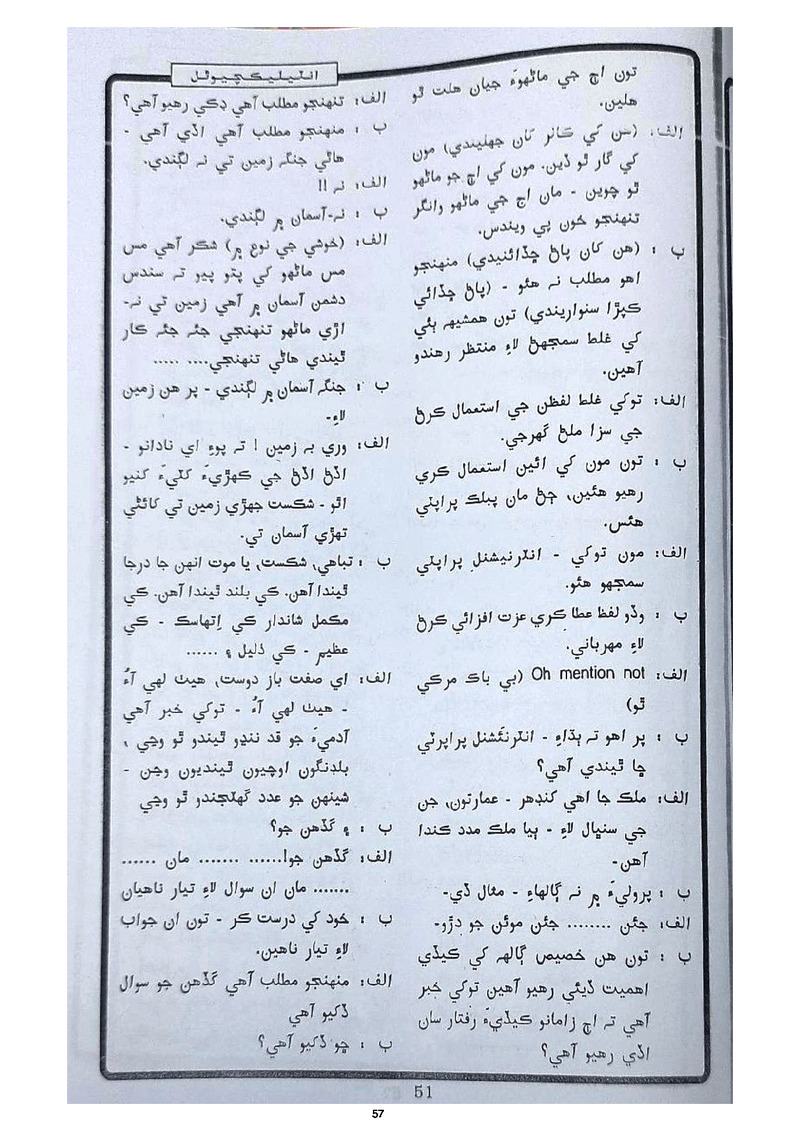 انٽيليڪچيوئل
تون اڄ جي ماڻهوءَ جيان هلت ٿو
هلين.
الف: (هن کي ڪالر کان جهليندي) مون
کي گار ٿو ڏين. مون کي اڄ جو ماڻهو
ٿو چوين - مان اڄ جي ماڻهو وانگر
تنهنجو خون پي ويندس.
ب : (هن کان پاڻ ڇڏائيندي) منهنجو
اهو مطلب نہ هئو - (پاڻ ڇڏائي
ڪپڙا سنواريندي) تون هميشہ ٻئي
کي غلط سمجهڻ لاءِ منتظر رهندو
آهين.
الف: توکي غلط لفظن جي استعمال ڪرڻ
جي سزا ملڻ گهرجي.
ب : تون مون کي ائين استعمال ڪري
رهيو هئين، ڄڻ مان پبلڪ پراپٽي
هئس.
الف: مون توکي - انٽرنيشنل پراپٽي
سمجهو هئو.
ب : وڏو لفظ عطا ڪري عزت افزائي ڪرڻ
لاءِ مهرباني.
الف: Oh mention not (بي باڪ مرڪي
ٿو)
ب : پر اهو تہ ٻڌاءِ - انٽرنئشنل پراپرٽي
ڇا ٿيندي آهي؟
الف: ملڪ جا اهي کنڊهر - عمارتون، جن
جي سنڀال لاءِ - ٻيا ملڪ مدد ڪندا
آهن-
ب : پروليءَ ۾ نہ ڳالهاءِ - مثال ڏي-
الف: جئن ........ جئن موئن جو دڙو-
ب : تون هن خصيص ڳالهہ کي ڪيڏي
اهميت ڏيئي رهيو آهين توکي خبر
آهي تہ اڄ زمانو ڪيڏيءَ رفتار سان
اڏي رهيو آهي؟
الف: تنهنجو مطلب آهي ڊڪي رهيو آهي؟
ب : منهنجو مطلب آهي اڏي آهي -
هاڻي جنگہ زمين تي نہ لڳندي.
الف: نہ !!
ب : نہ-آسمان ۾ لڳندي.
الف: (خوشي جي نوع ۾) شڪر آهي مس
مس ماڻهو کي پتو پيو تہ سندس
دشمن آسمان ۾ آهي زمين تي نہ-
اڙي ماڻهو تنهنجي جئہ جئہ ڪار
ٿيندي هاڻي تنهنجي.... .....
ب : جنگہ آسمان ۾ لڳندي - پر هن زمين
لاءِ-
الف: وري بہ زمين ! تہ پوءِ اي نادانو -
اڏڻ اڏڻ جي ڪهڙيءَ کٽيءَ کنيو
اٿو - شڪست جهڙي زمين تي کائڻي
تهڙي آسمان تي.
ب : تباهي، شڪست، يا موت انهن جا درجا
ٿيندا آهن. ڪي بلند ٿيندا آهن. ڪي
مڪمل شاندار ڪي اِتهاسڪ - ڪي
عظيم - ڪي ذليل ۽ ......
الف: اي صفت باز دوست، هيٺ لهي آءُ
- هيٺ لهي آءُ - توکي خبر آهي
آدميءَ جو قد ننڍو ٿيندو ٿو وڃي ،
بلڊنگون اوچيون ٿينديون وڃن -
شينهن جو عدد گهٽجندو ٿو وڃي
ب : ۽ گڏهن جو؟
الف: گڏهن جو!...... ....... مان ......
....... مان ان سوال لاءِ تيار ناهيان
ب : خود کي درست ڪر - تون ان جواب
لاءِ تيار ناهين.
الف: منهنجو مطلب آهي گڏهن جو سوال
ڏکيو آهي
ب : ڇو ڏکيو آهي؟
51
57